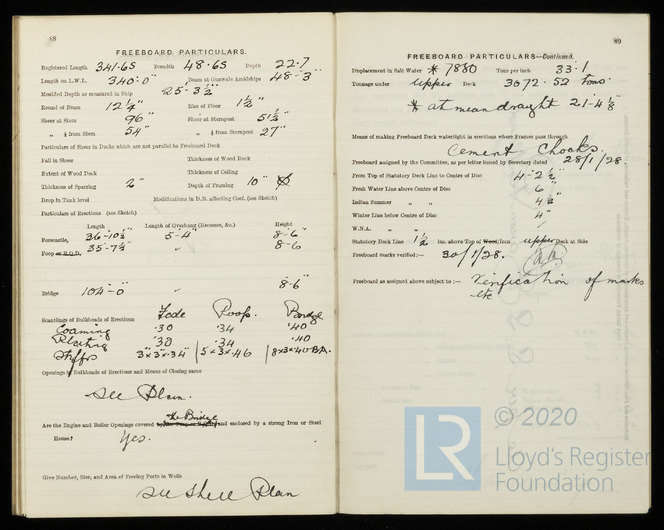 88
FREEBOARD PARTICULARS.
Registered Length 341.65 Breadth 48.65 Depth 22.7
Length on L.W.L. 340'-0" Beam at Gunwale Amidships 48'-3"
Moulded Depth as measured in Ship 25-3½"
Round of Beam 12¼" Rise of Floor 1½"
Sheer at Stem 96" Sheer at Sternpost 51½"
" ⅛ from Stem 54" " ⅛ from Sternpost 27"
Particulars of Sheer in Decks which are not parallel to Freeboard Deck
Fall in Sheer Thickness of Wood Deck
Extent of Wood Deck Thickness of Ceiling
Thickness of Sparring 2" Depth of Framing 10"
Drop in Tank level Modifications in D.B. affecting Coef. (see Sketch)
Particulars of Erections (see Sketch)
Length Length of Overhang (Recesses, &c.) Height
Forecastle, 36-10½" 5-4" 8-6"
Poop or R.Q.D. 35-7½" " 8-6
Bridge 104-0" " 8-6"
Scantlings of Bulkheads of Erections Focle Poop. Bridge
Coaming .30 .34 .40
Plating .30 .34 .40
Stiffrs 3"x3"x.34" 5x3x.46 8x3x.40 BA.
Openings in Bulkheads of Erections and Means of Closing same
See Plan.
Are the Engine and Boiler Openings covered the Bridge and enclosed by a strong Iron or Steel
House? Yes.
Give Number, Size, and Area of Freeing Ports in Wells
See Shell Plan
89
FREEBOARD PARTICULARS—Continued.
Displacement in Salt Water * 7880 Tons per inch 33.1
Tonnage under Upper Deck 3072.52 tons
* at mean draught 21-4⅛"
Means of making Freeboard Deck watertight in erections where Frames pass through
Cement Chocks.
Freeboard assigned by the Committee, as per letter issued by Secretary dated 28/1/28.
From Top of Statutory Deck Line to Centre of Disc 4-2½"
Fresh Water Line above Centre of Disc 6"
Indian Summer " " 4½"
Winter Line below Centre of Disc 4"
W.N.A. " "
Statutory Deck Line 1½ ins. above Top of Wood/Iron upper Deck at Side
Freeboard marks verified:— 30/1/28.
Freeboard as assigned above subject to:— Verification of marks
etc
LR
© 2020
Lloyd's Register
Foundation